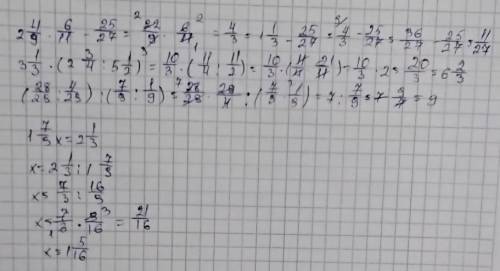 2 4/9 · 6/11 - 25/27 = 22/9 · 6/11 = 4/3 = 1 1/3 - 25/27 = 4/3 - 25/27 = 36/27 - 25/27 = 11/27
3 1/3 · (2 3/4 : 5 1/2) = 10/3 · (11/4 : 11/2) = 10/3 · 2 = 20/3 = 6 2/3
(28/25 : 4/25) : (7/9 : 1/9) = 7 : 7/9 = 9
1 7/9 x = 2 1/3
x = 2 1/3 : 1 7/9
x = 7/3 : 16/9
x = 7/3 · 9/16 = 21/16
x = 1 5/16